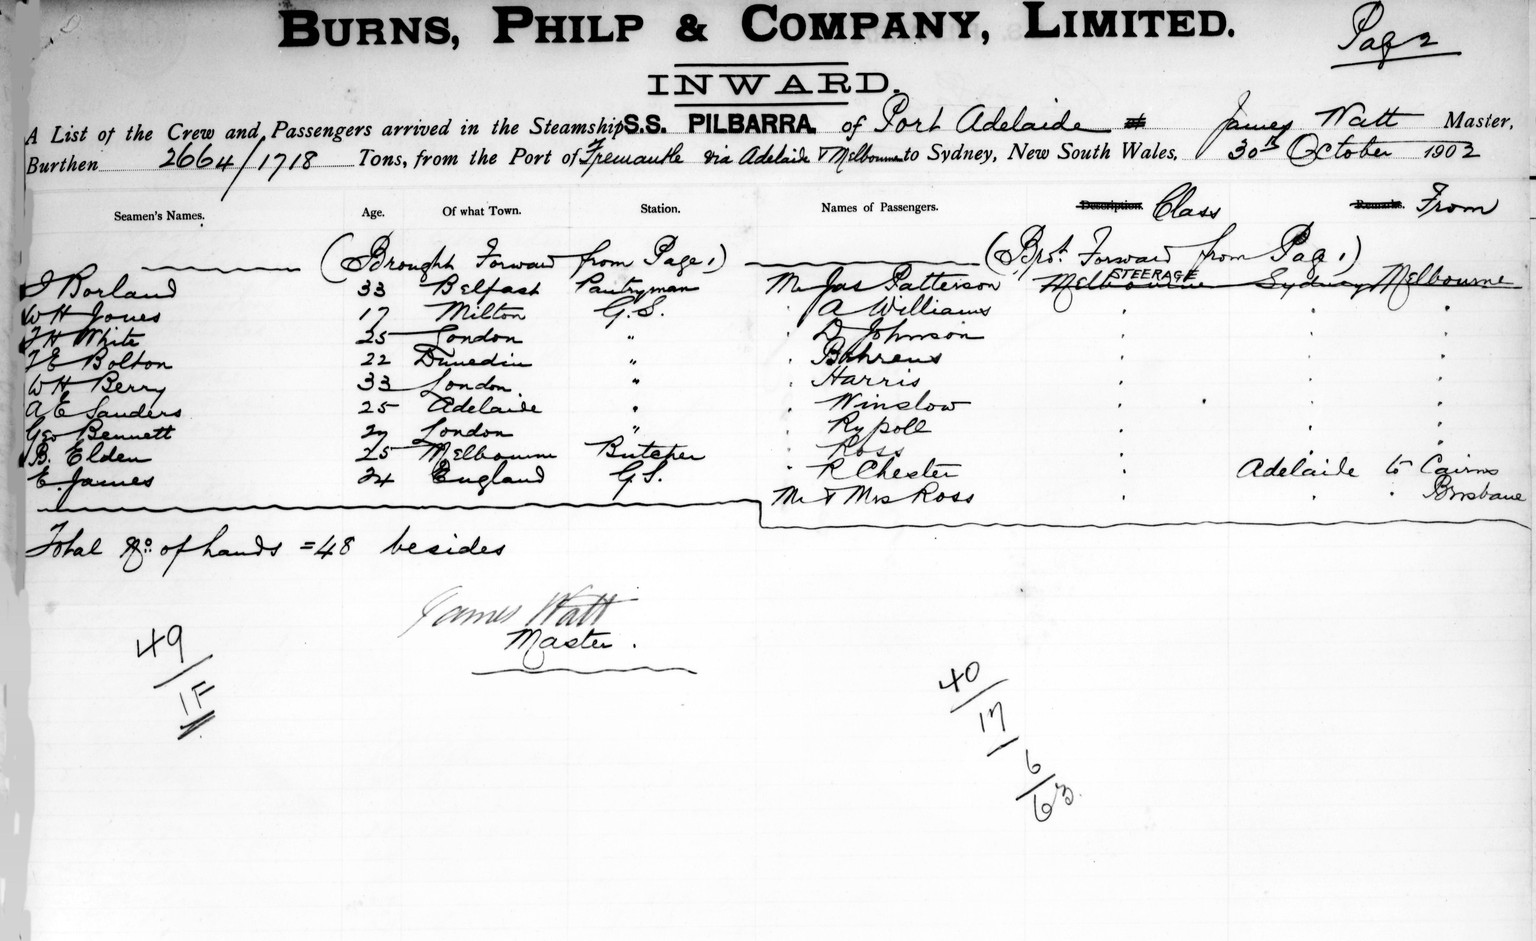 BURNS, PHILP & COMPANY, LIMITED.
Page 2
INWARD.
A List of the Crew and Passengers arrived in the Steamship S.S. PILBARRA of Port Adelaide James Watt Master,
Burthen 2664/1718 Tons, from the Port of Fremantle via Adelaide & Melbourne to Sydney, New South Wales, 30th October 1902
Seamen's Names. Age. Of what Town. Station. Names of Passengers. Description Class Remarks. From
(Brought Forward from Page 1) (Bro't Forward from Page 1)
J Borland 33 Belfast Pantryman Mr Jas Patterson Melbourne STEERAGE Sydney Melbourne
W H Jones 17 Milton G.S. " A Williams " " "
F H White 25 London " " D Johnson " " "
T E Bolton 22 Dunedin " " Behrens " " "
W H Berry 33 London " " Harris " " "
A E Sanders 25 Adelaide " " Winslow " " "
Geo Bennett 27 London " " Rypoll " " "
B. Elden 25 Melbourne Butcher " Ross " " "
E. James 24 England G.S. " R Chester " Adelaide to Cairns
Mr & Mrs Ross " " " Brisbane
Total No. of hands = 48 besides
James Watt
Master.
49
1F
40
17
6
63